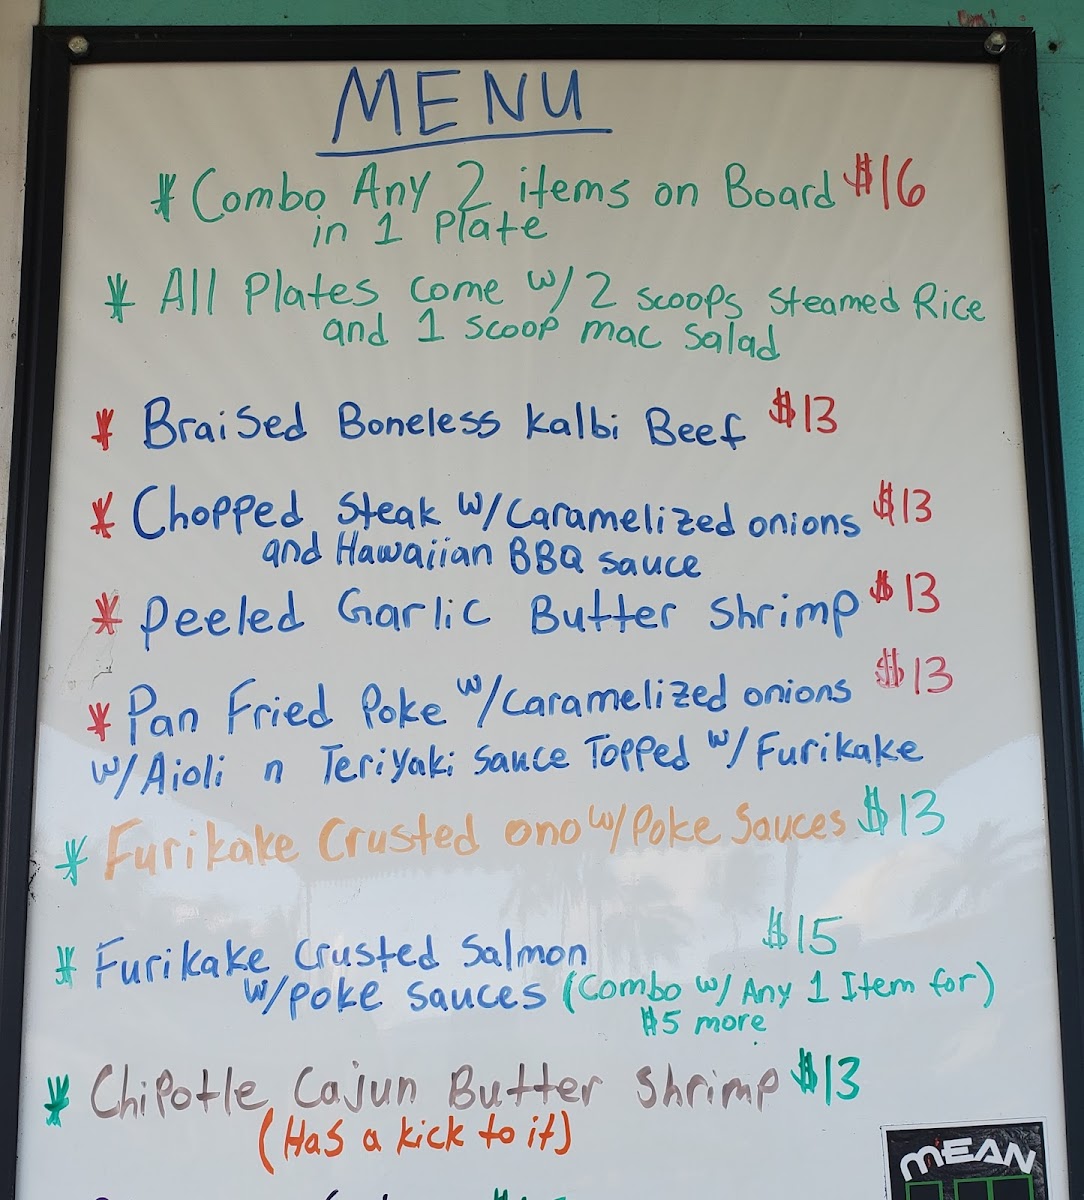 MENU
* Combo Any 2 items on Board $16
in 1 Plate
* All Plates come w/ 2 scoops steamed Rice
and 1 scoop mac salad
* Braised Boneless Kalbi Beef $13
* Chopped steak w/ Caramelized onions $13
and Hawaiian BBQ sauce
* Peeled Garlic Butter Shrimp $13
* Pan Fried Poke w/ Caramelized onions $13
w/ Aioli n Teriyaki Sauce Topped w/ Furikake
* Furikake Crusted ono w/ Poke Sauces $13
* Furikake Crusted Salmon $15
w/ poke sauces (Combo w/ Any 1 Item for)
$5 more
* Chipotle Cajun Butter Shrimp $13
(Has a kick to it)
MEAN